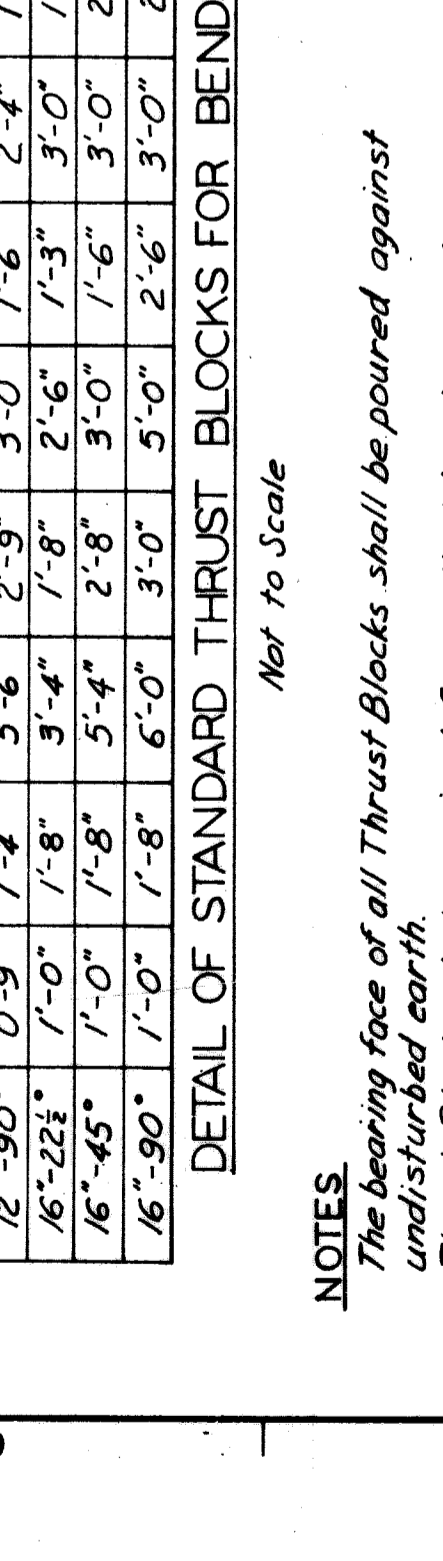 12"-90° 0'-9" 1'-4" 5'-6 2'-9" 3'-0 1'-6 2'-4" 1
16"-22½° 1'-0" 1'-8" 3'-4" 1'-8" 2'-6" 1'-3" 3'-0" 1
16"-45° 1'-0" 1'-8" 5'-4" 2'-8" 3'-0" 1'-6" 3'-0" 2
16"-90° 1'-0" 1'-8" 6'-0" 3'-0" 5'-0" 2'-6" 3'-0" 2
DETAIL OF STANDARD THRUST BLOCKS FOR BEND
Not to Scale
NOTES
The bearing face of all Thrust Blocks shall be poured against
undisturbed earth.